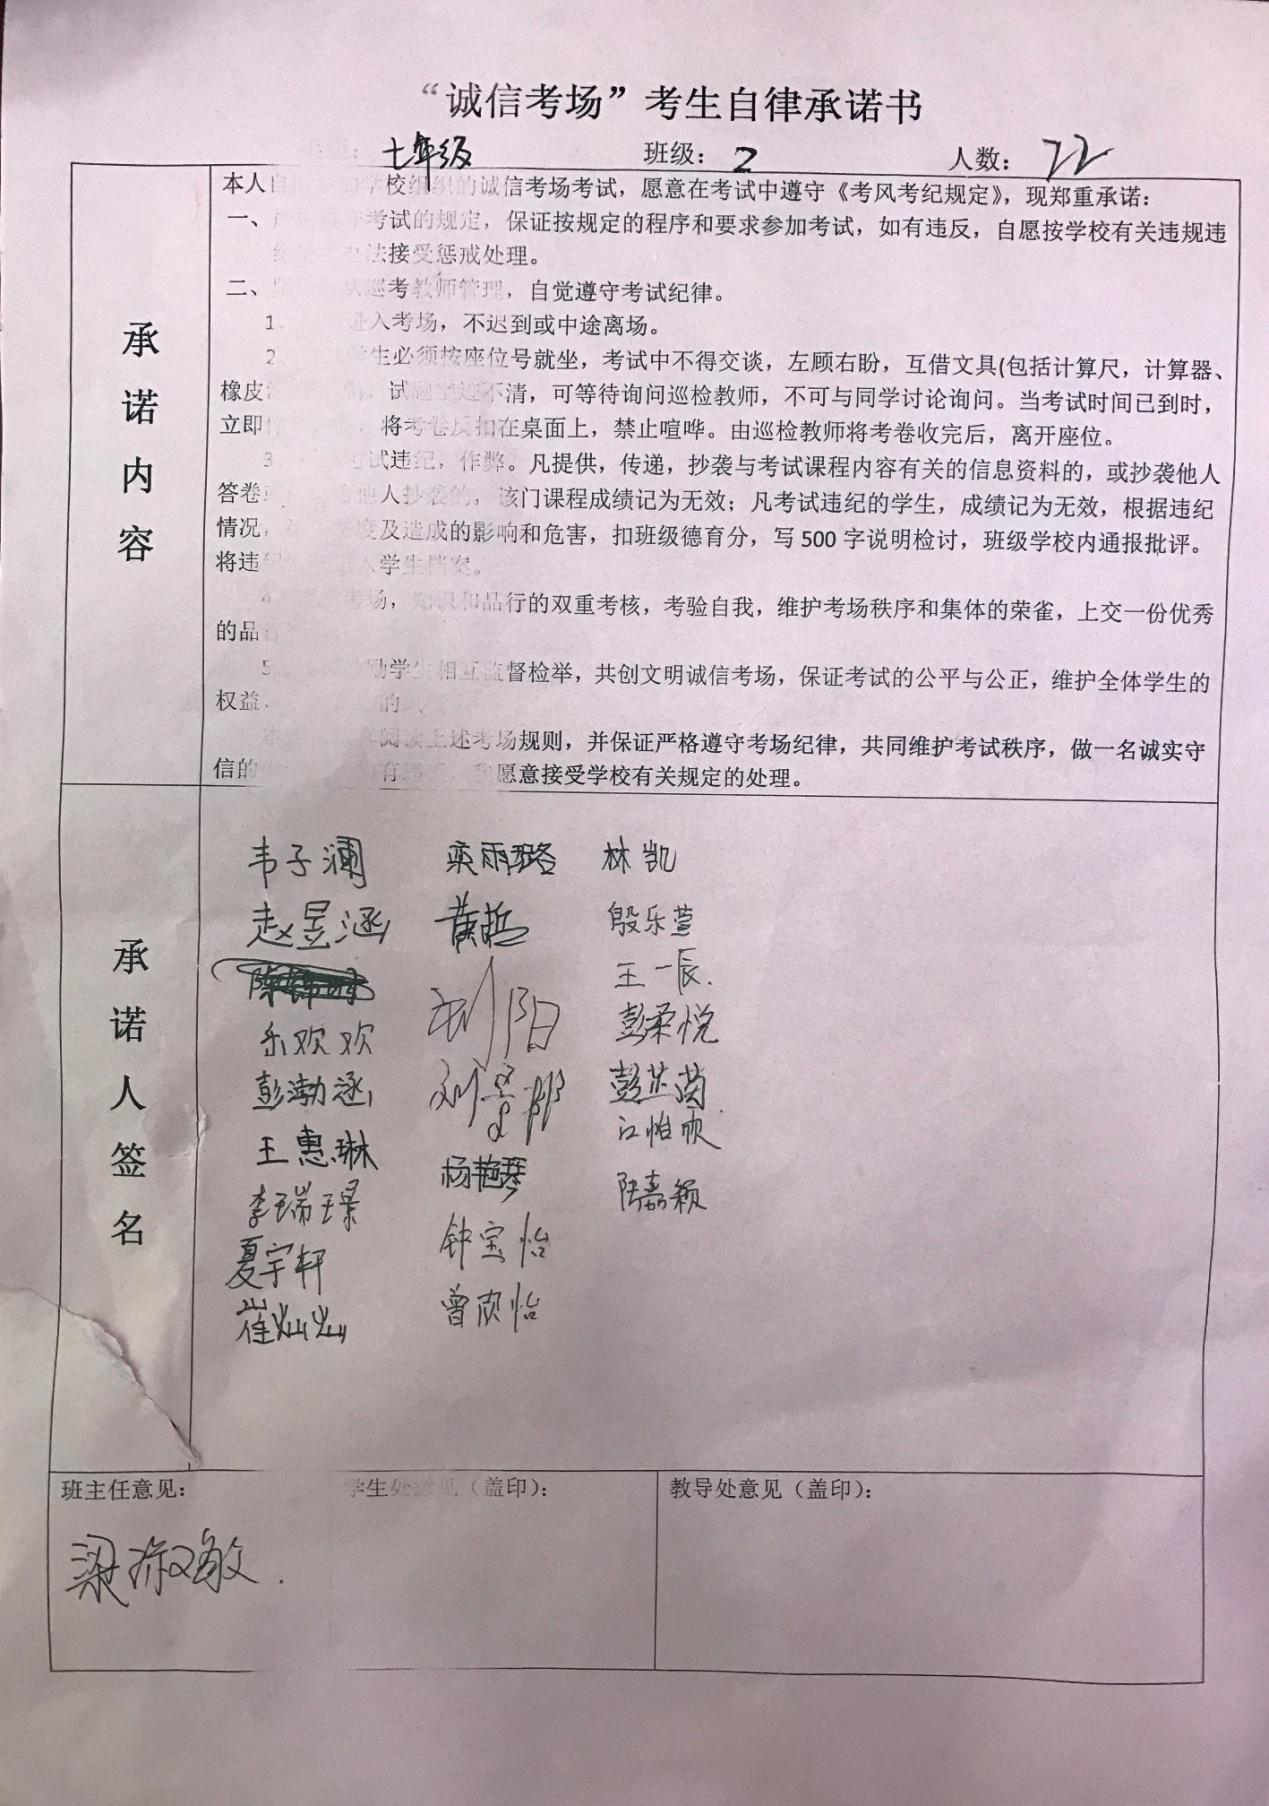 “诚信考场”考生自律承诺书
七年级 班级：2 人数：22
承诺内容
本人自 加学校组织的诚信考场考试，愿意在考试中遵守《考风考纪规定》，现郑重承诺：
一、 考试的规定，保证按规定的程序和要求参加考试，如有违反，自愿按学校有关违规违
办法接受惩戒处理。
二、 从巡考教师管理，自觉遵守考试纪律。
1、 进入考场，不迟到或中途离场。
2、 学生必须按座位号就坐，考试中不得交谈，左顾右盼，互借文具(包括计算尺，计算器、
橡皮 )。试题字迹不清，可等待询问巡检教师，不可与同学讨论询问。当考试时间已到时，
立即 将考卷反扣在桌面上，禁止喧哗。由巡检教师将考卷收完后，离开座位。
3 考试违纪，作弊。凡提供，传递，抄袭与考试课程内容有关的信息资料的，或抄袭他人
答卷 他人抄袭的，该门课程成绩记为无效；凡考试违纪的学生，成绩记为无效，根据违纪
情况， 度及造成的影响和危害，扣班级德育分，写 500 字说明检讨，班级学校内通报批评。
将违 入学生档案。
4 考场，知识和品行的双重考核，考验自我，维护考场秩序和集体的荣雀，上交一份优秀
的品
5、 励学生相互监督检举，共创文明诚信考场，保证考试的公平与公正，维护全体学生的
权益 的
本 阅读上述考场规则，并保证严格遵守考场纪律，共同维护考试秩序，做一名诚实守
信的 有 我愿意接受学校有关规定的处理。
承诺人签名
韦子澜 奕雨璐 林凯
赵昱涵 黄哲 殷乐萱
王一辰.
乐欢欢 刘阳 彭柔悦
彭渤涵 刘 彭芷茵
王惠琳 杨艳琴 江怡欣
李瑞璟 钟宝怡 陆嘉颖
夏宇轩 曾欣怡
崔灿灿
班主任意见： 学生处意见（盖印）： 教导处意见（盖印）：
梁淑敏.